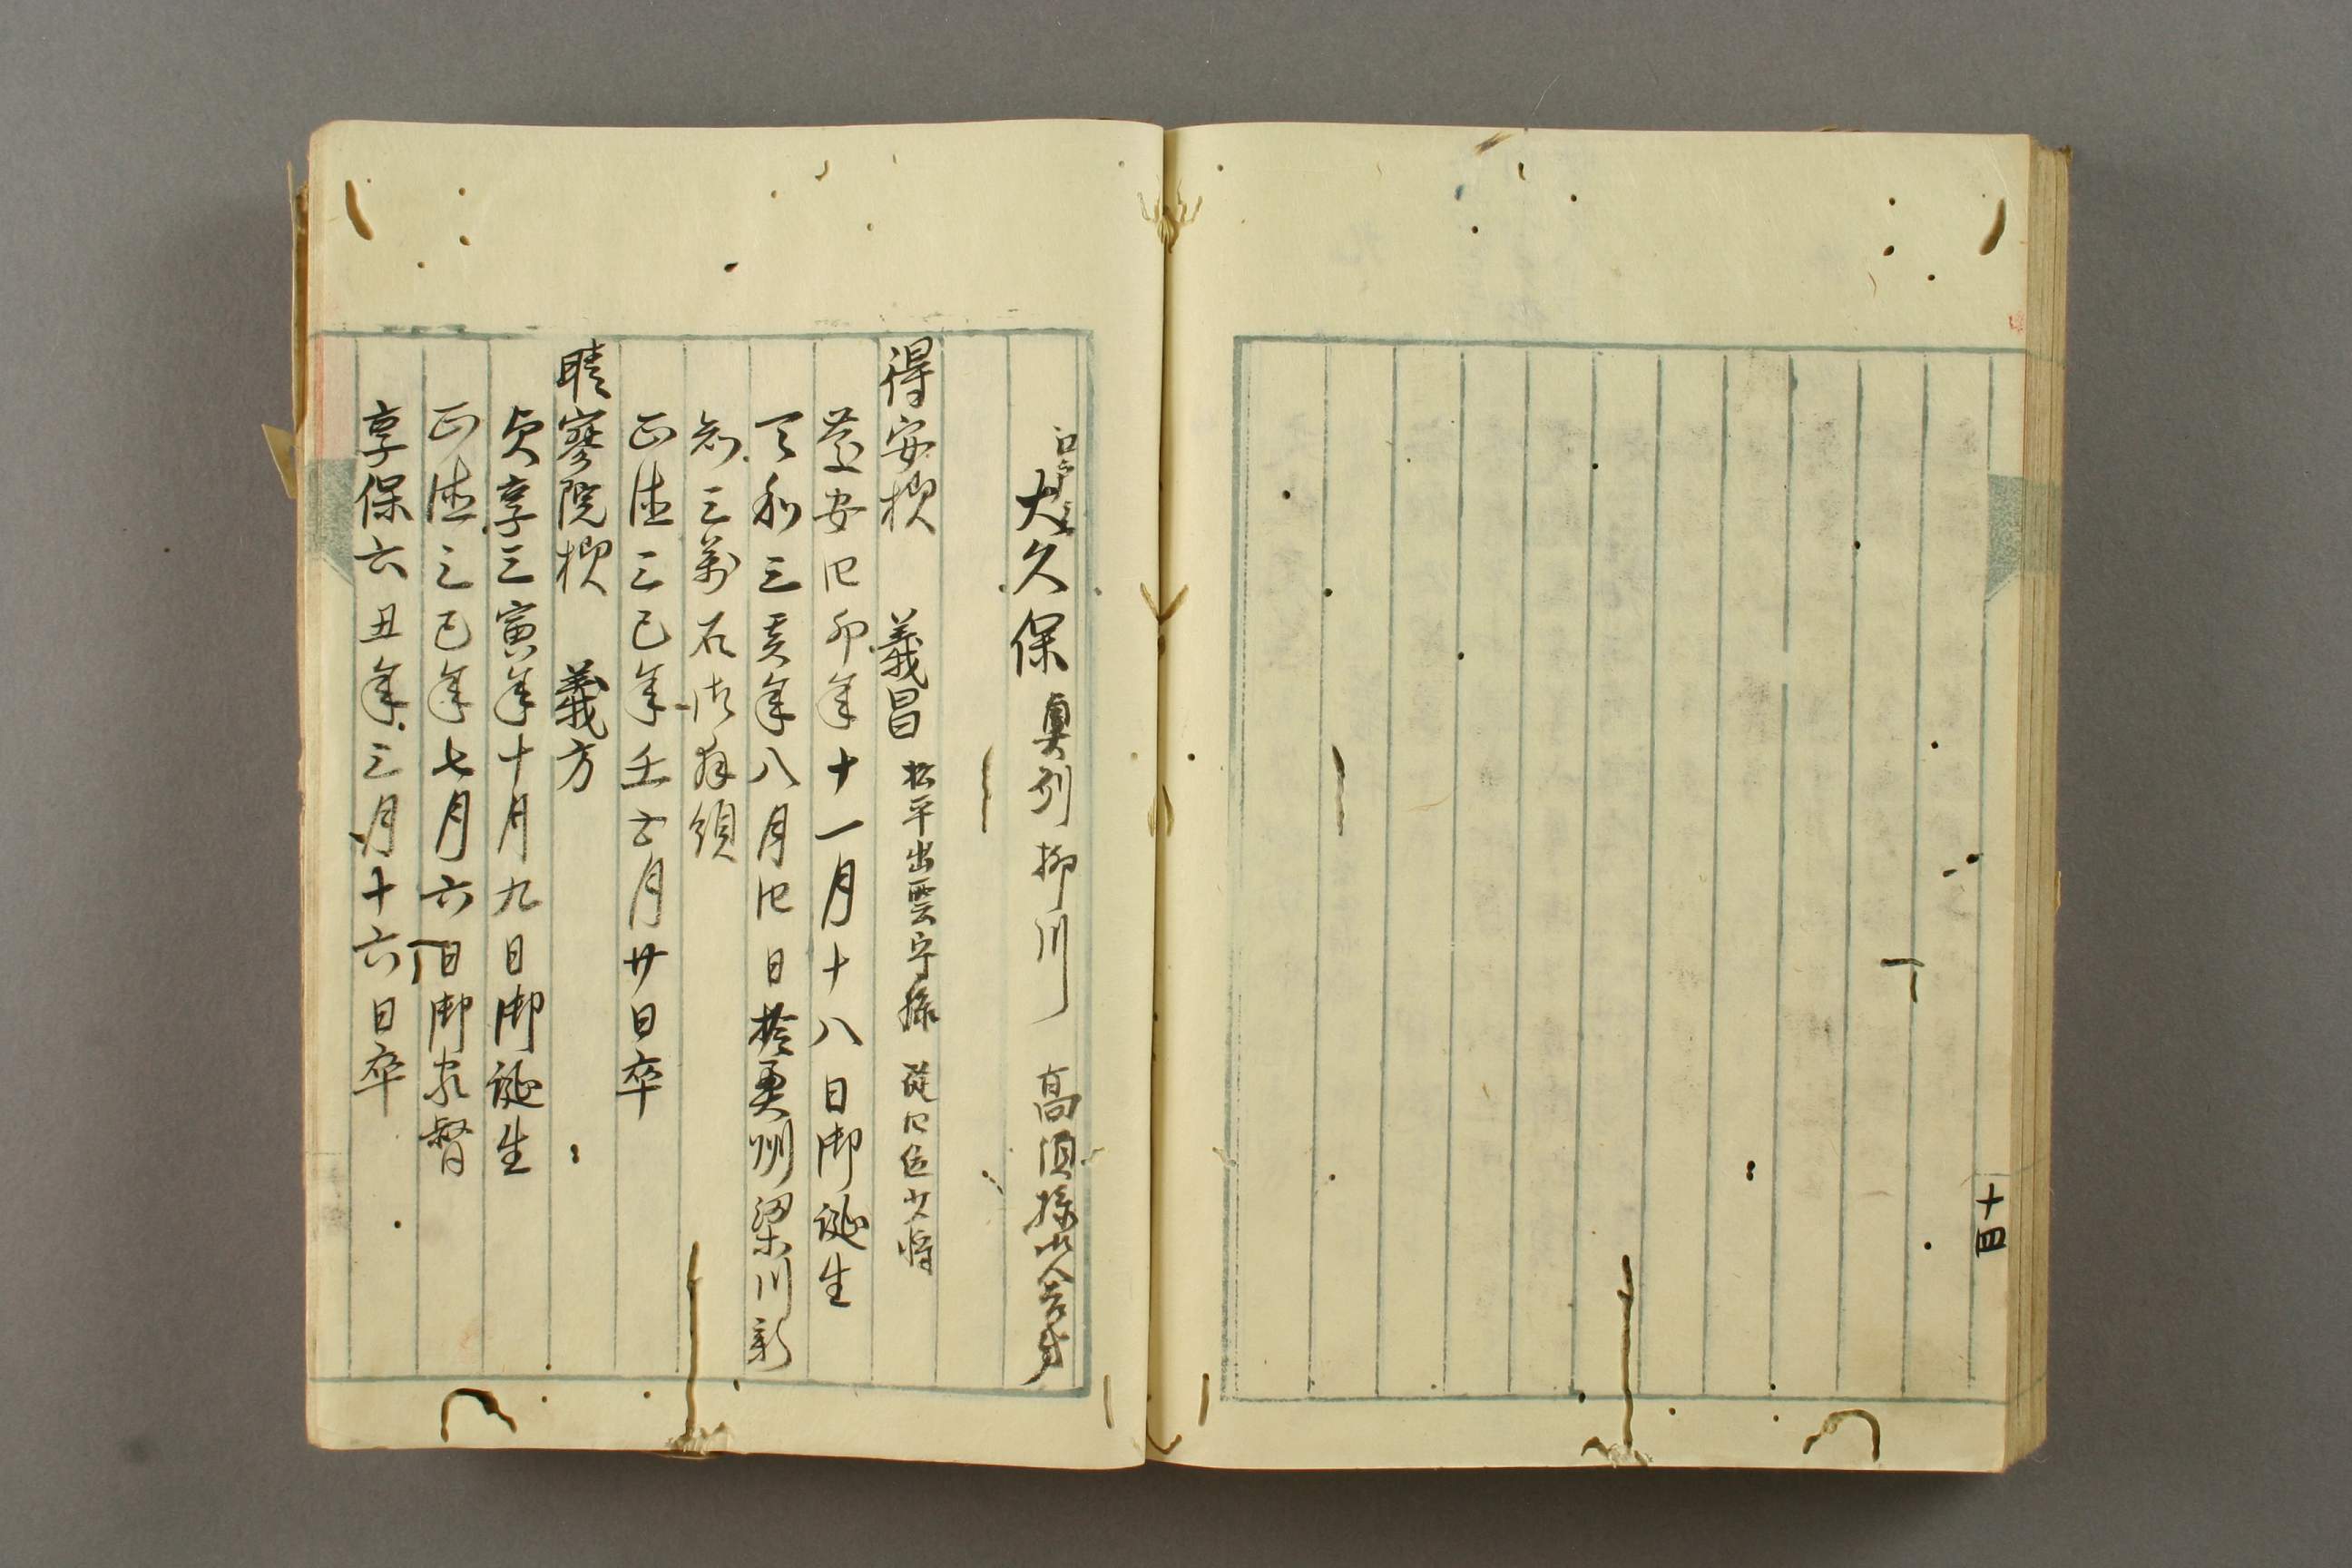 十四
大久保 奥州柳川 高須様御舎弟
得安様 義昌 松平出雲守様 従四位少将
慶安四卯年十一月十八日御誕生
天和三亥年八月四日於奥州梁川新
知三万石御拝領
正徳三巳年壬五月廿日卒
晴寥院様 義方
貞享三寅年十月九日御誕生
正徳三巳年七月六日御家督
享保六丑年三月十六日卒